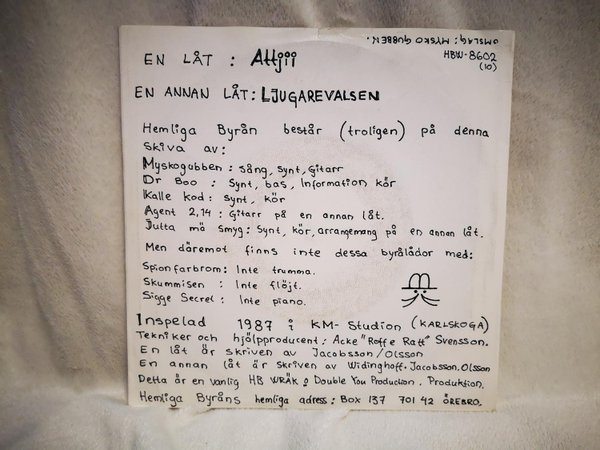 OMSLAG: MYSKO GUBBEN.
EN LÅT : Attjii
HBW-8602
(10)
EN ANNAN LÅT: LJUGAREVALSEN
Hemliga Byrån består (troligen) på denna
skiva av:
Myskogubben : sång, synt, gitarr
Dr Boo : Synt, bas, Information kör
Kalle kod : synt, kör
Agent 2,14 : Gitarr på en annan låt.
Jutta må Smyg: Synt, kör, arrangemang på en annan låt.
Men däremot finns inte dessa byrålådor med:
Spionfarbrom: Inte trumma.
Skummisen : Inte flöjt.
Sigge Secret : Inte piano.
Inspelad 1987 i KM-Studion (KARLSKOGA)
Tekniker och hjälpproducent: Acke "Roffe Raff" Svensson.
En låt är skriven av Jacobsson/Olsson
En annan låt är skriven av Widinghoff, Jacobsson, Olsson
Detta är en vanlig HB WRÄK & Double You Production, Produktion.
Hemliga Byråns hemliga adress: Box 137 701 42 ÖREBRO.